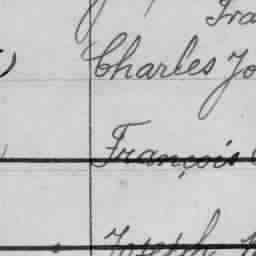 Fra
Charles Jo
François
Joseph